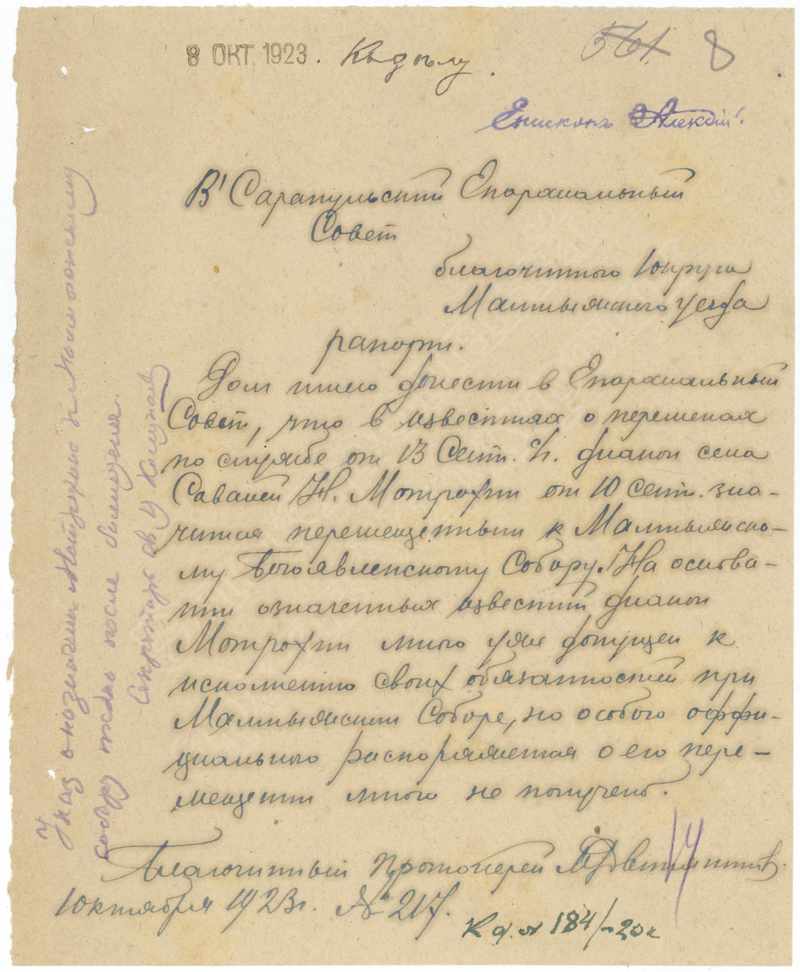 8 ОКТ. 1923. К делу
561 8
Епископ Алексий
В Сарапульский Епархиальный
Совет
благочинного 1 округа
Малмыжского уезда
рапорт.
Долг имею донести в Епархиальный
Совет, что в известиях о переменах
по службе от 13 Сент. диакон села
от 10 сент. зна-
чится перемещенным к Малмыжско-
му Богоявленскому Собору. На основа-
нии означенных известий диакон
Митрофан мною уже допущен к
исполнению своих обязанностей при
Малмыжском Соборе, но особого оффи-
циального распоряжения о его пере-
мещении мною не получено.
Благочинный Протоиерей
1 октября 1923 г. № 217.
К д. № 184/-20 г
Указ о назначении к Малмыжскому
собору после
Секретарь